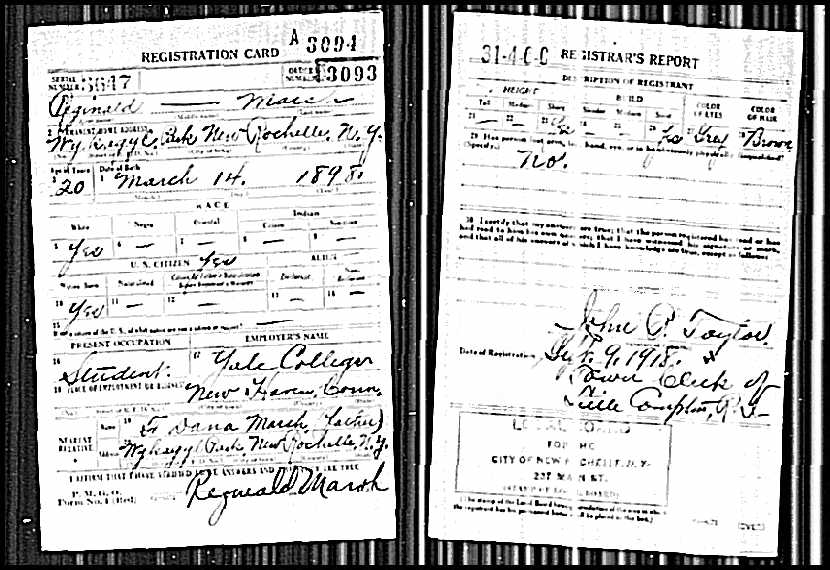 REGISTRATION CARD A 3094
SERIAL NUMBER 3647 ORDER NUMBER 3093
Reginald — Marsh
PERMANENT HOME ADDRESS
Wykagyl Park New Rochelle, N.Y.
Age in Years Date of Birth
20 March 14. 1898.
RACE
White Negro Oriental Indian
Citizen
5 Yes 6 — 7 — 8 — 9 —
U. S. CITIZEN Yes ALIEN
Native Born Naturalized
10 Yes 11 — 12 — 13 — 14 —
15
PRESENT OCCUPATION EMPLOYER'S NAME
16 Student. 17 Yale College
18 PLACE OF EMPLOYMENT OR BUSINESS
New Haven, Conn.
NEAREST RELATIVE
Name 19 F Dana Marsh, father)
Address Wykagyl Park, New Rochelle, N.Y.
I AFFIRM THAT I HAVE VERIFIED ABOVE ANSWERS AND THAT THEY ARE TRUE
P. M. G. O.
Form No. 1 (Red)
Reginald Marsh
31-4-0-C REGISTRAR'S REPORT
DESCRIPTION OF REGISTRANT
HEIGHT BUILD COLOR OF EYES COLOR OF HAIR
Tall Medium Short Slender Medium Stout
21 — 22 — 23 24 — 25 — 26 Yes 27 Grey 28 Brown
29 Has person lost arm, leg, hand, eye, or is he
(Specify.)
No.
30 I certify that my answers are true; that the person registered has read or has
had read to him his own answers; that I have witnessed his signature or mark,
and that all of his answers of which I have knowledge are true, except as follows:
John P. Taylor
Date of Registration Sept. 9, 1918.
Town Clerk of
Little Compton, R.I.
LOCAL BOARD
FOR THE
CITY OF NEW ROCHELLE, N.Y.
237 MAIN ST.
(STAMP OF LOCAL BOARD)
(The stamp of the Local Board having jurisdiction of the area in which
the registrant has his permanent home shall be placed in this box.)